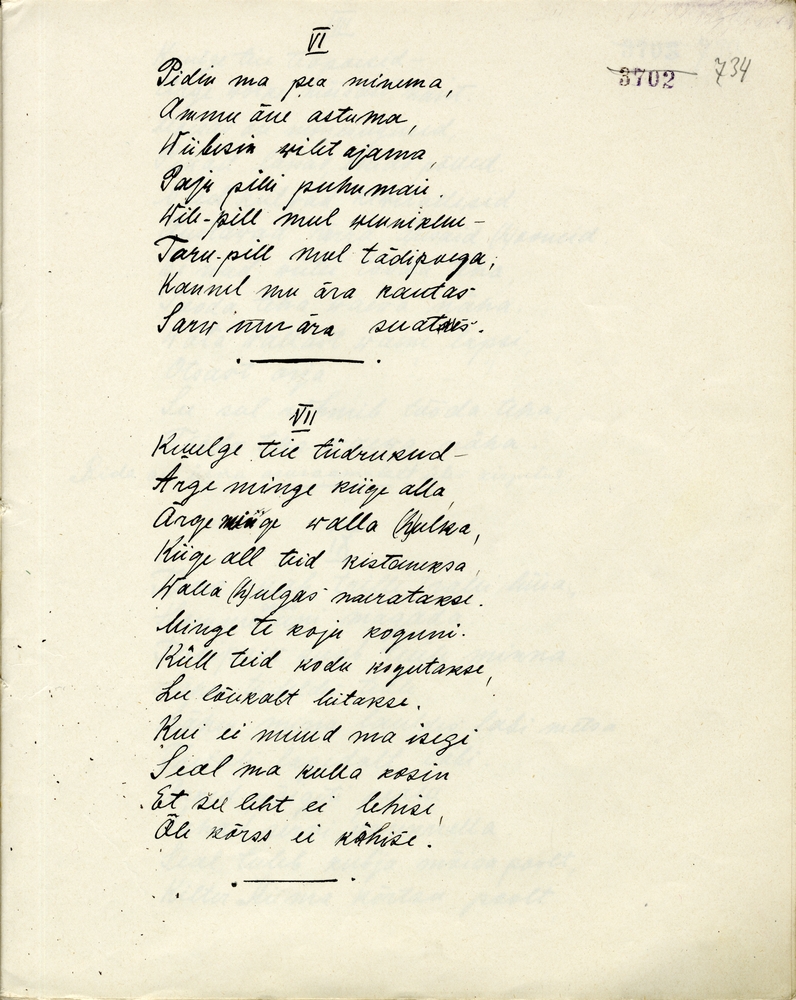 VI
3702 734
Pidin ma pea minema,
Ammu äue astuma,
Wiibisin wilet ajama,
Paju pilli puhumaii.
Wile-pill mul wennikene -
Toru-pill mul tädipoega,
Kannel mu ära kautas
Sarw mu ära suatas.
VII
Kuulge teie tüdrukud -
Ärge minge kiige alla,
Ärge minge walla (h)ulka,
Kiige all teid kistanessa,
Walla (h)ulgas naeratakse.
Minge te koju koguni.
Küll teid kodu kogutakse,
Lee lõukalt leitakse.
Kui ei muud ma isegi
Seal ma kulla kosin
Et see leht ei lehise,
Õle kõrss ei kähise.